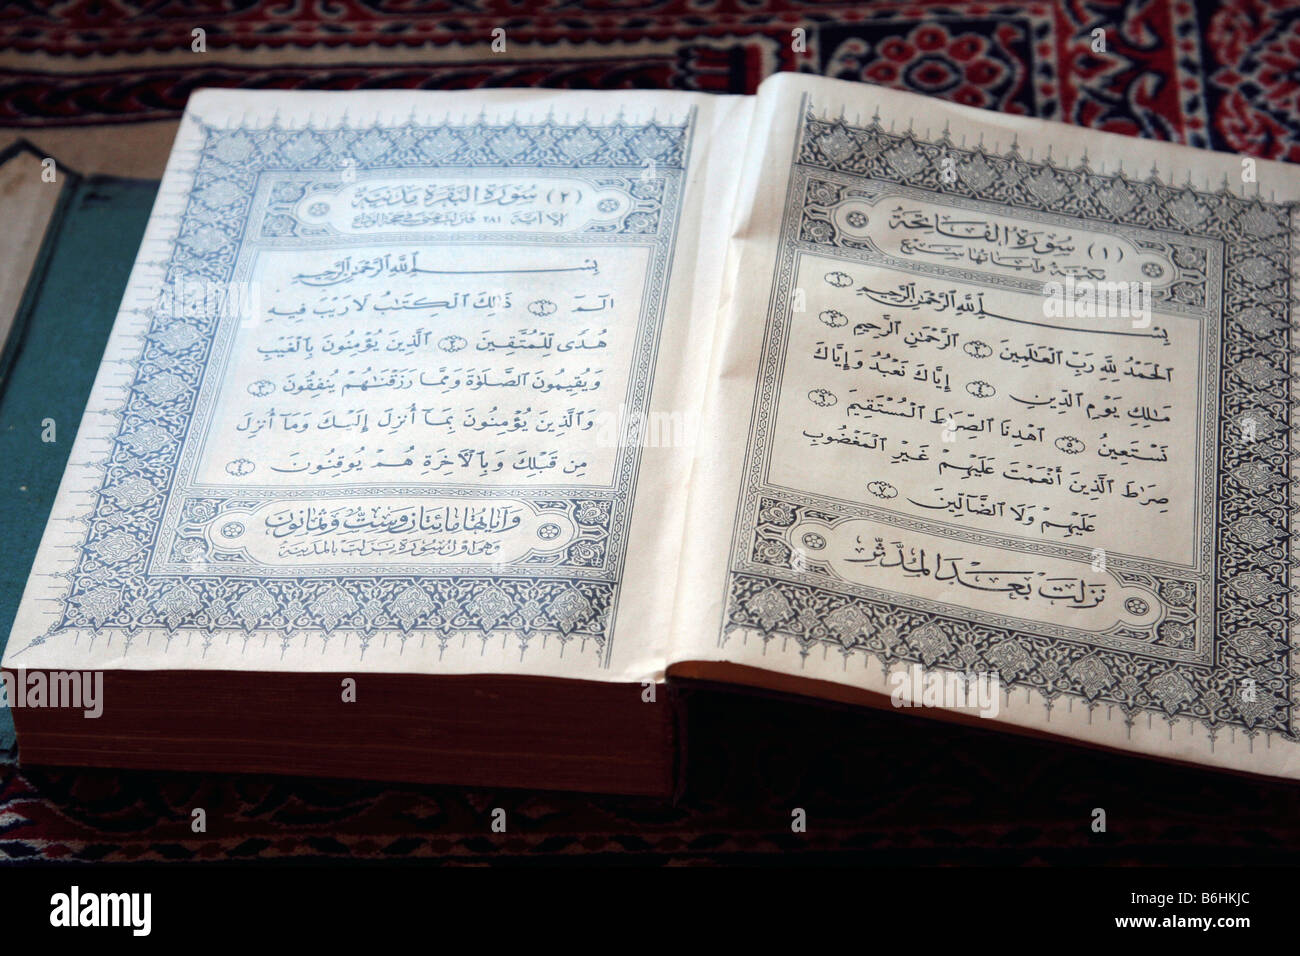 (١) سُورَةُ الفَاتِحَة
مَكِّيَّة وَآيَاتُهَا سَبْعٌ
بِسْمِ اللَّهِ الرَّحْمَٰنِ الرَّحِيمِ ۝١
الْحَمْدُ لِلَّهِ رَبِّ الْعَالَمِينَ ۝٢ الرَّحْمَٰنِ الرَّحِيمِ ۝٣
مَالِكِ يَوْمِ الدِّينِ ۝٤ إِيَّاكَ نَعْبُدُ وَإِيَّاكَ
نَسْتَعِينُ ۝٥ اهْدِنَا الصِّرَاطَ الْمُسْتَقِيمَ ۝٦
صِرَاطَ الَّذِينَ أَنْعَمْتَ عَلَيْهِمْ غَيْرِ الْمَغْضُوبِ
عَلَيْهِمْ وَلَا الضَّالِّينَ ۝٧
نَزَلَتْ بَعْدَ الْمُدَّثِّر
(٢) سُورَةُ الْبَقَرَة مَدَنِيَّة
إِلَّا آيَة ٢٨١ فنزلت بمنى في حجة الوداع
بِسْمِ اللَّهِ الرَّحْمَٰنِ الرَّحِيمِ
الٓمٓ ۝١ ذَٰلِكَ الْكِتَٰبُ لَا رَيْبَ فِيهِ
هُدًى لِلْمُتَّقِينَ ۝٢ الَّذِينَ يُؤْمِنُونَ بِالْغَيْبِ
وَيُقِيمُونَ الصَّلَاةَ وَمِمَّا رَزَقْنَاهُمْ يُنفِقُونَ ۝٣
وَالَّذِينَ يُؤْمِنُونَ بِمَآ أُنزِلَ إِلَيْكَ وَمَآ أُنزِلَ
مِن قَبْلِكَ وَبِالْآخِرَةِ هُمْ يُوقِنُونَ ۝٤
وَآيَاتُهَا مِائَتَانِ وَسِتٌّ وَثَمَانُونَ
وَهِيَ أَوَّلُ سُورَة نَزَلَتْ بِالْمَدِينَة
alamy
alamy
Image ID: B6HKJC
www.alamy.com